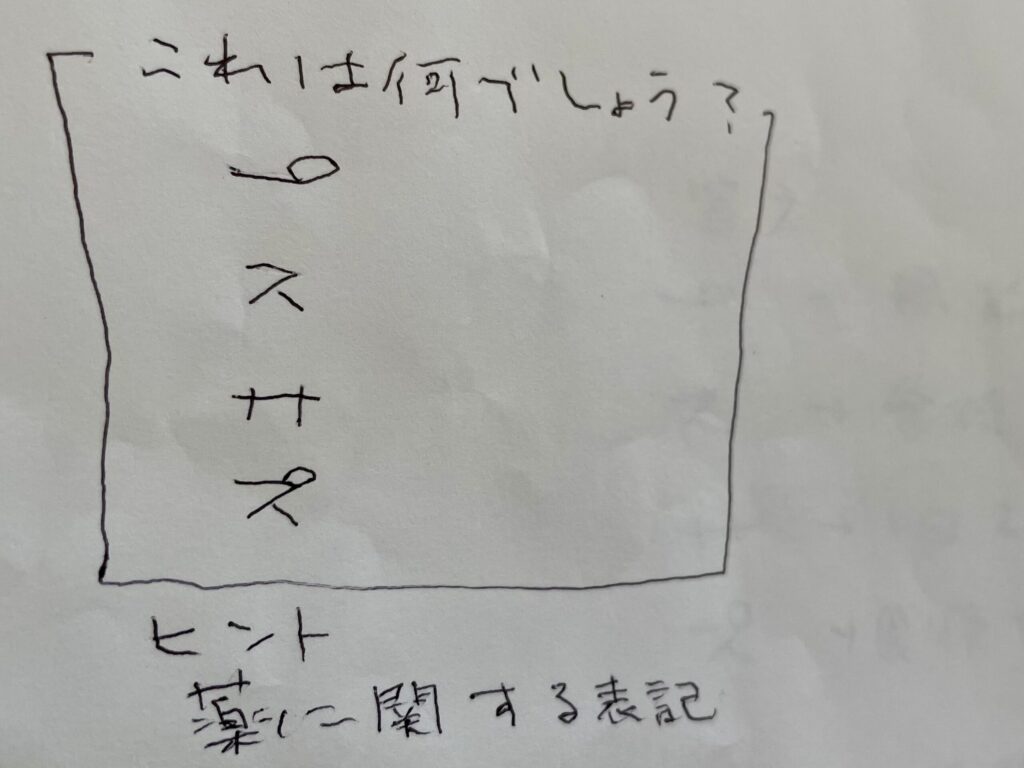 これは何でしょう?
ス
ヒント
薬に関する表記